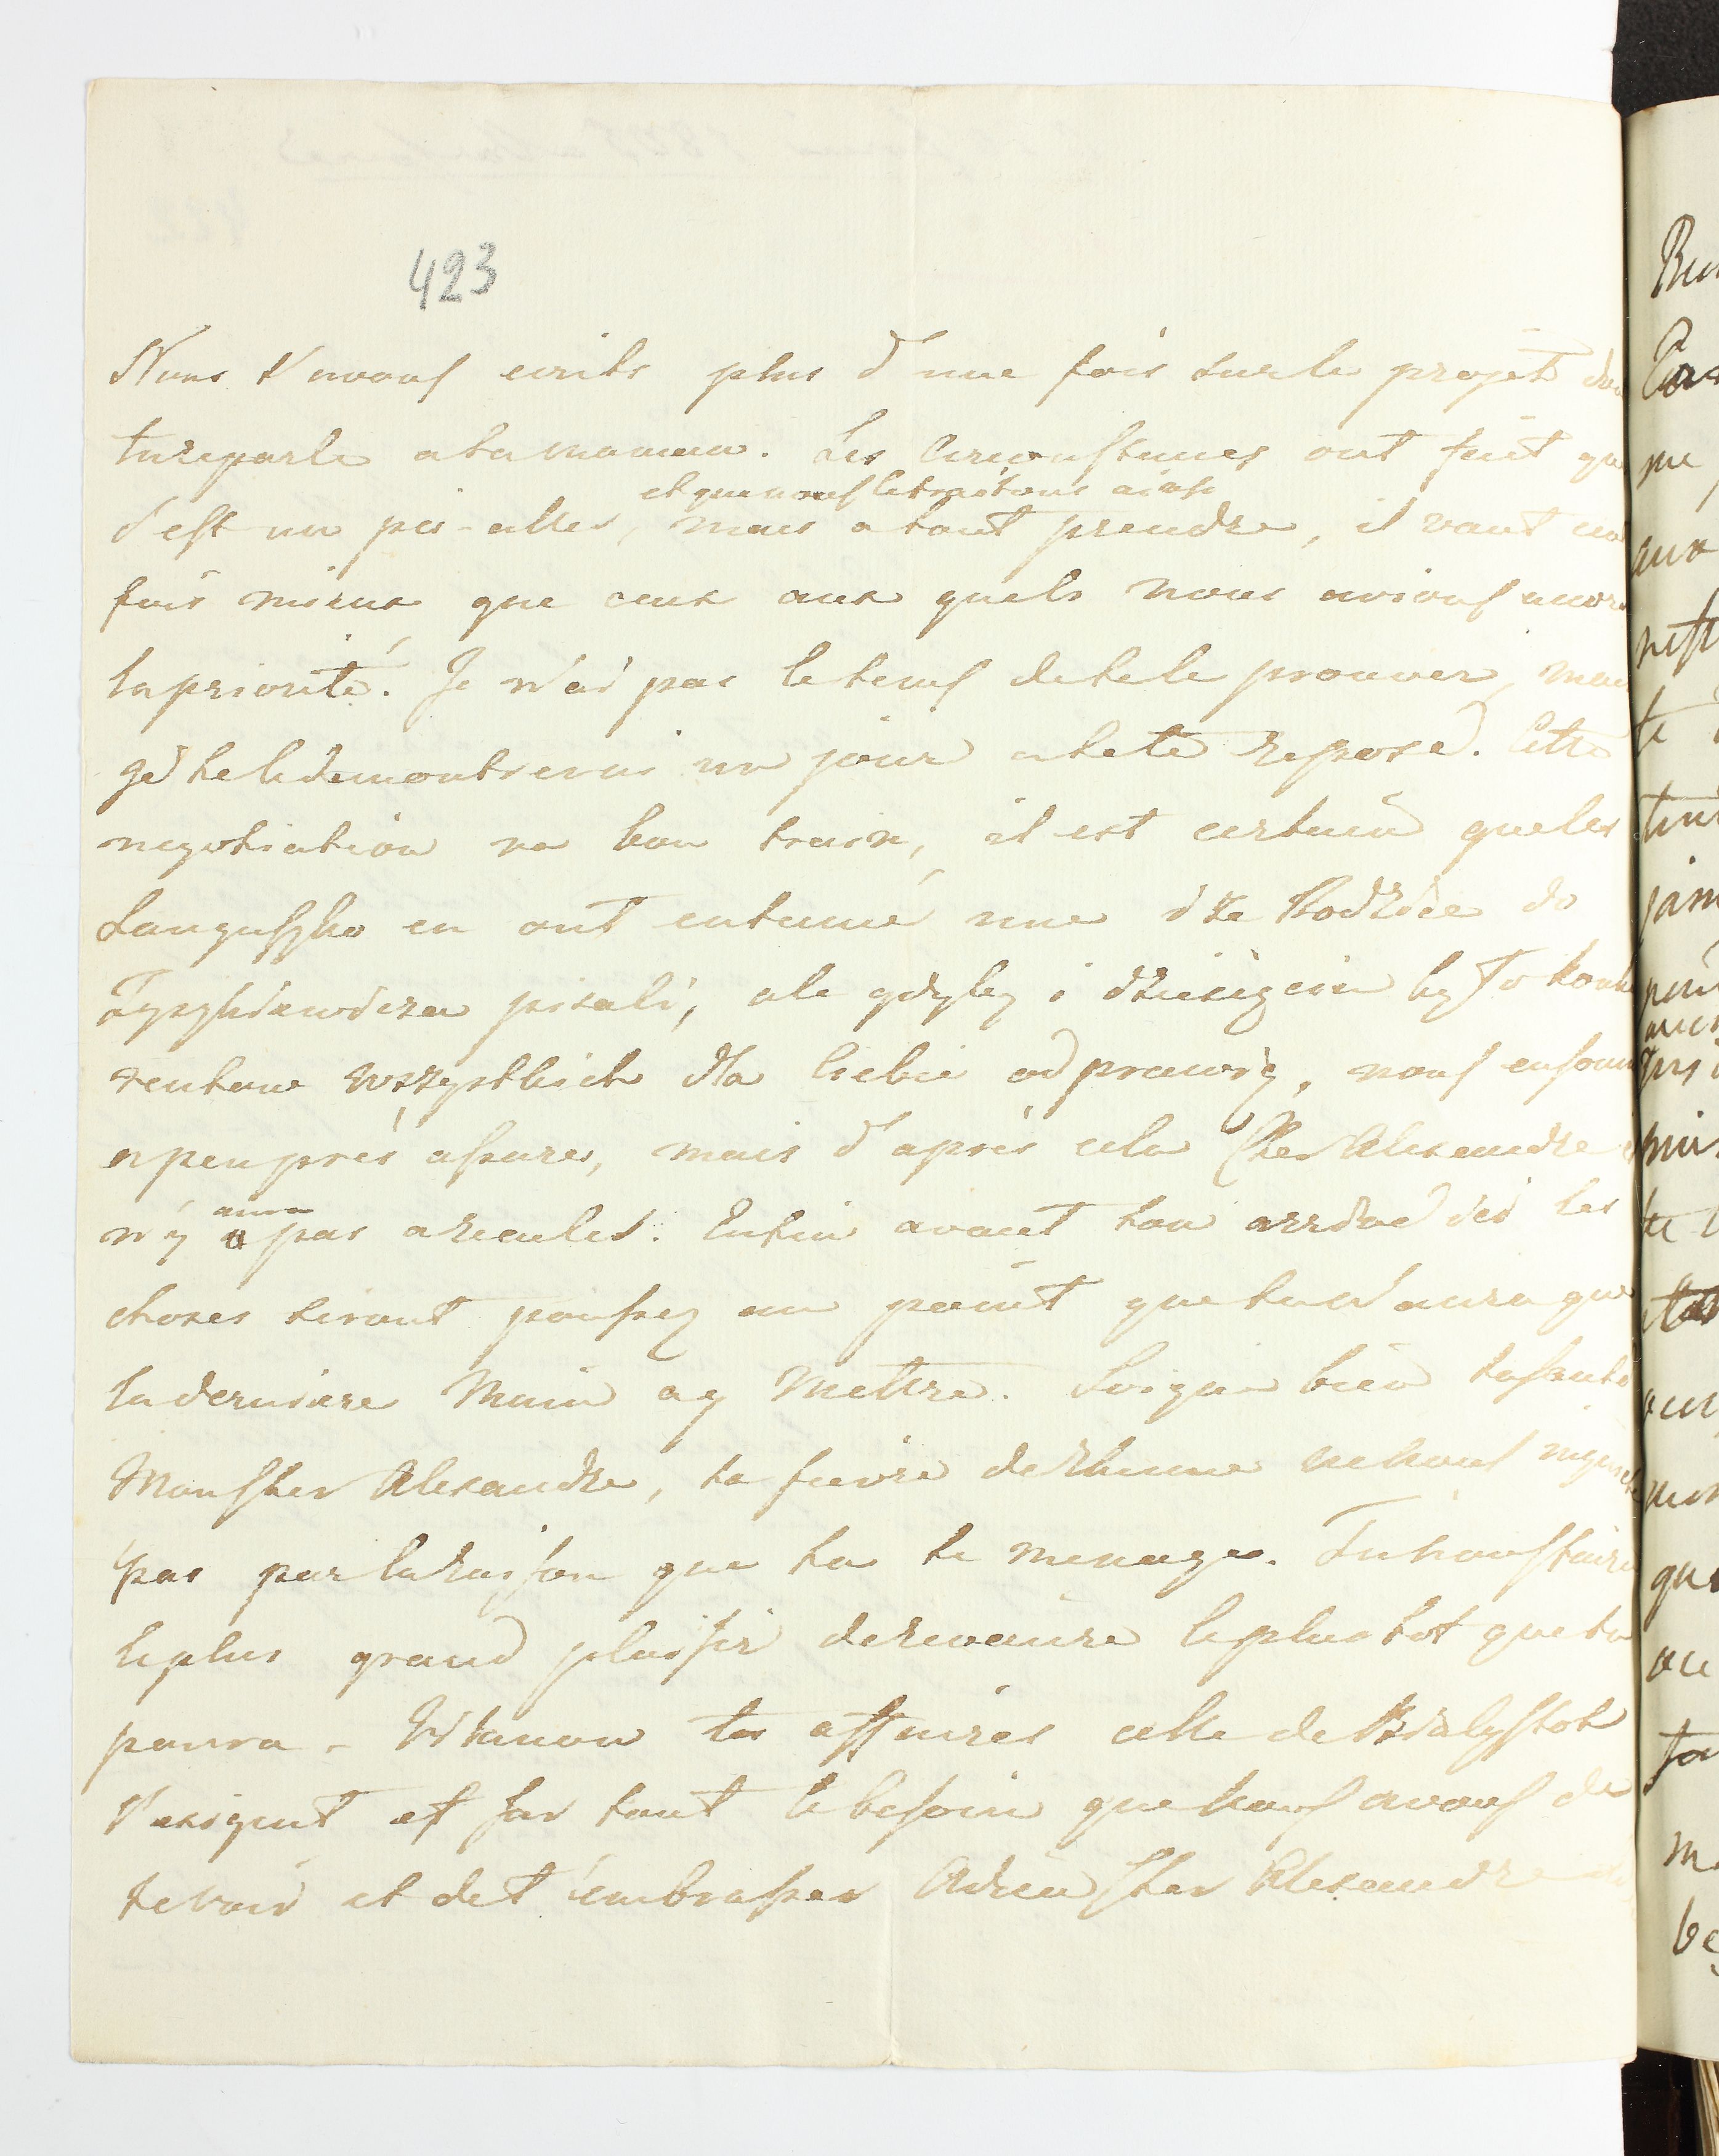 423
Nous t'avons ecrits plus d'une fois sur le projet don
tu reparle a ta maman. Les Circonstances ont fait que
c'est un pis-aller, et que nous le traitons ainsi mais a tout prendre, il vaut cent
fois mieux que ceux aux quels nous avions accor
la priorité. Je n'ai pas le tems de te le prouver, mais
je te le demontrerai un jour a tete reposé. Cette
negotiation va bon train, il est certain que les
Sanguszko en ont entamé une i że Rodzice do
Tyszkiewicza pisali, ale gdyby i dziesięciu było konku
rentow wszystkich dla Ciebie odprawią, nous en somm
a peu près assurés, mais d'après cela Cher Alexandre il
n'y aura pas a reculer. Enfin avant ton arrivé ici les
choses seront poussez au point que tu n'aura que
la derniere Main a y Mettre. Soigne bien ta santé
Mon Cher Alexandre, ta fievre de rhume ne nous inquiete
pas par la raison que tu te menages. Tu nous faira
le plus grand plaisir de revenire le plus tot que tu
pourra - tes affaires celle de
l'exigent et sur tout le besoin que nous avons de
te voir et de t'embrasser Adieu Cher Alexandre